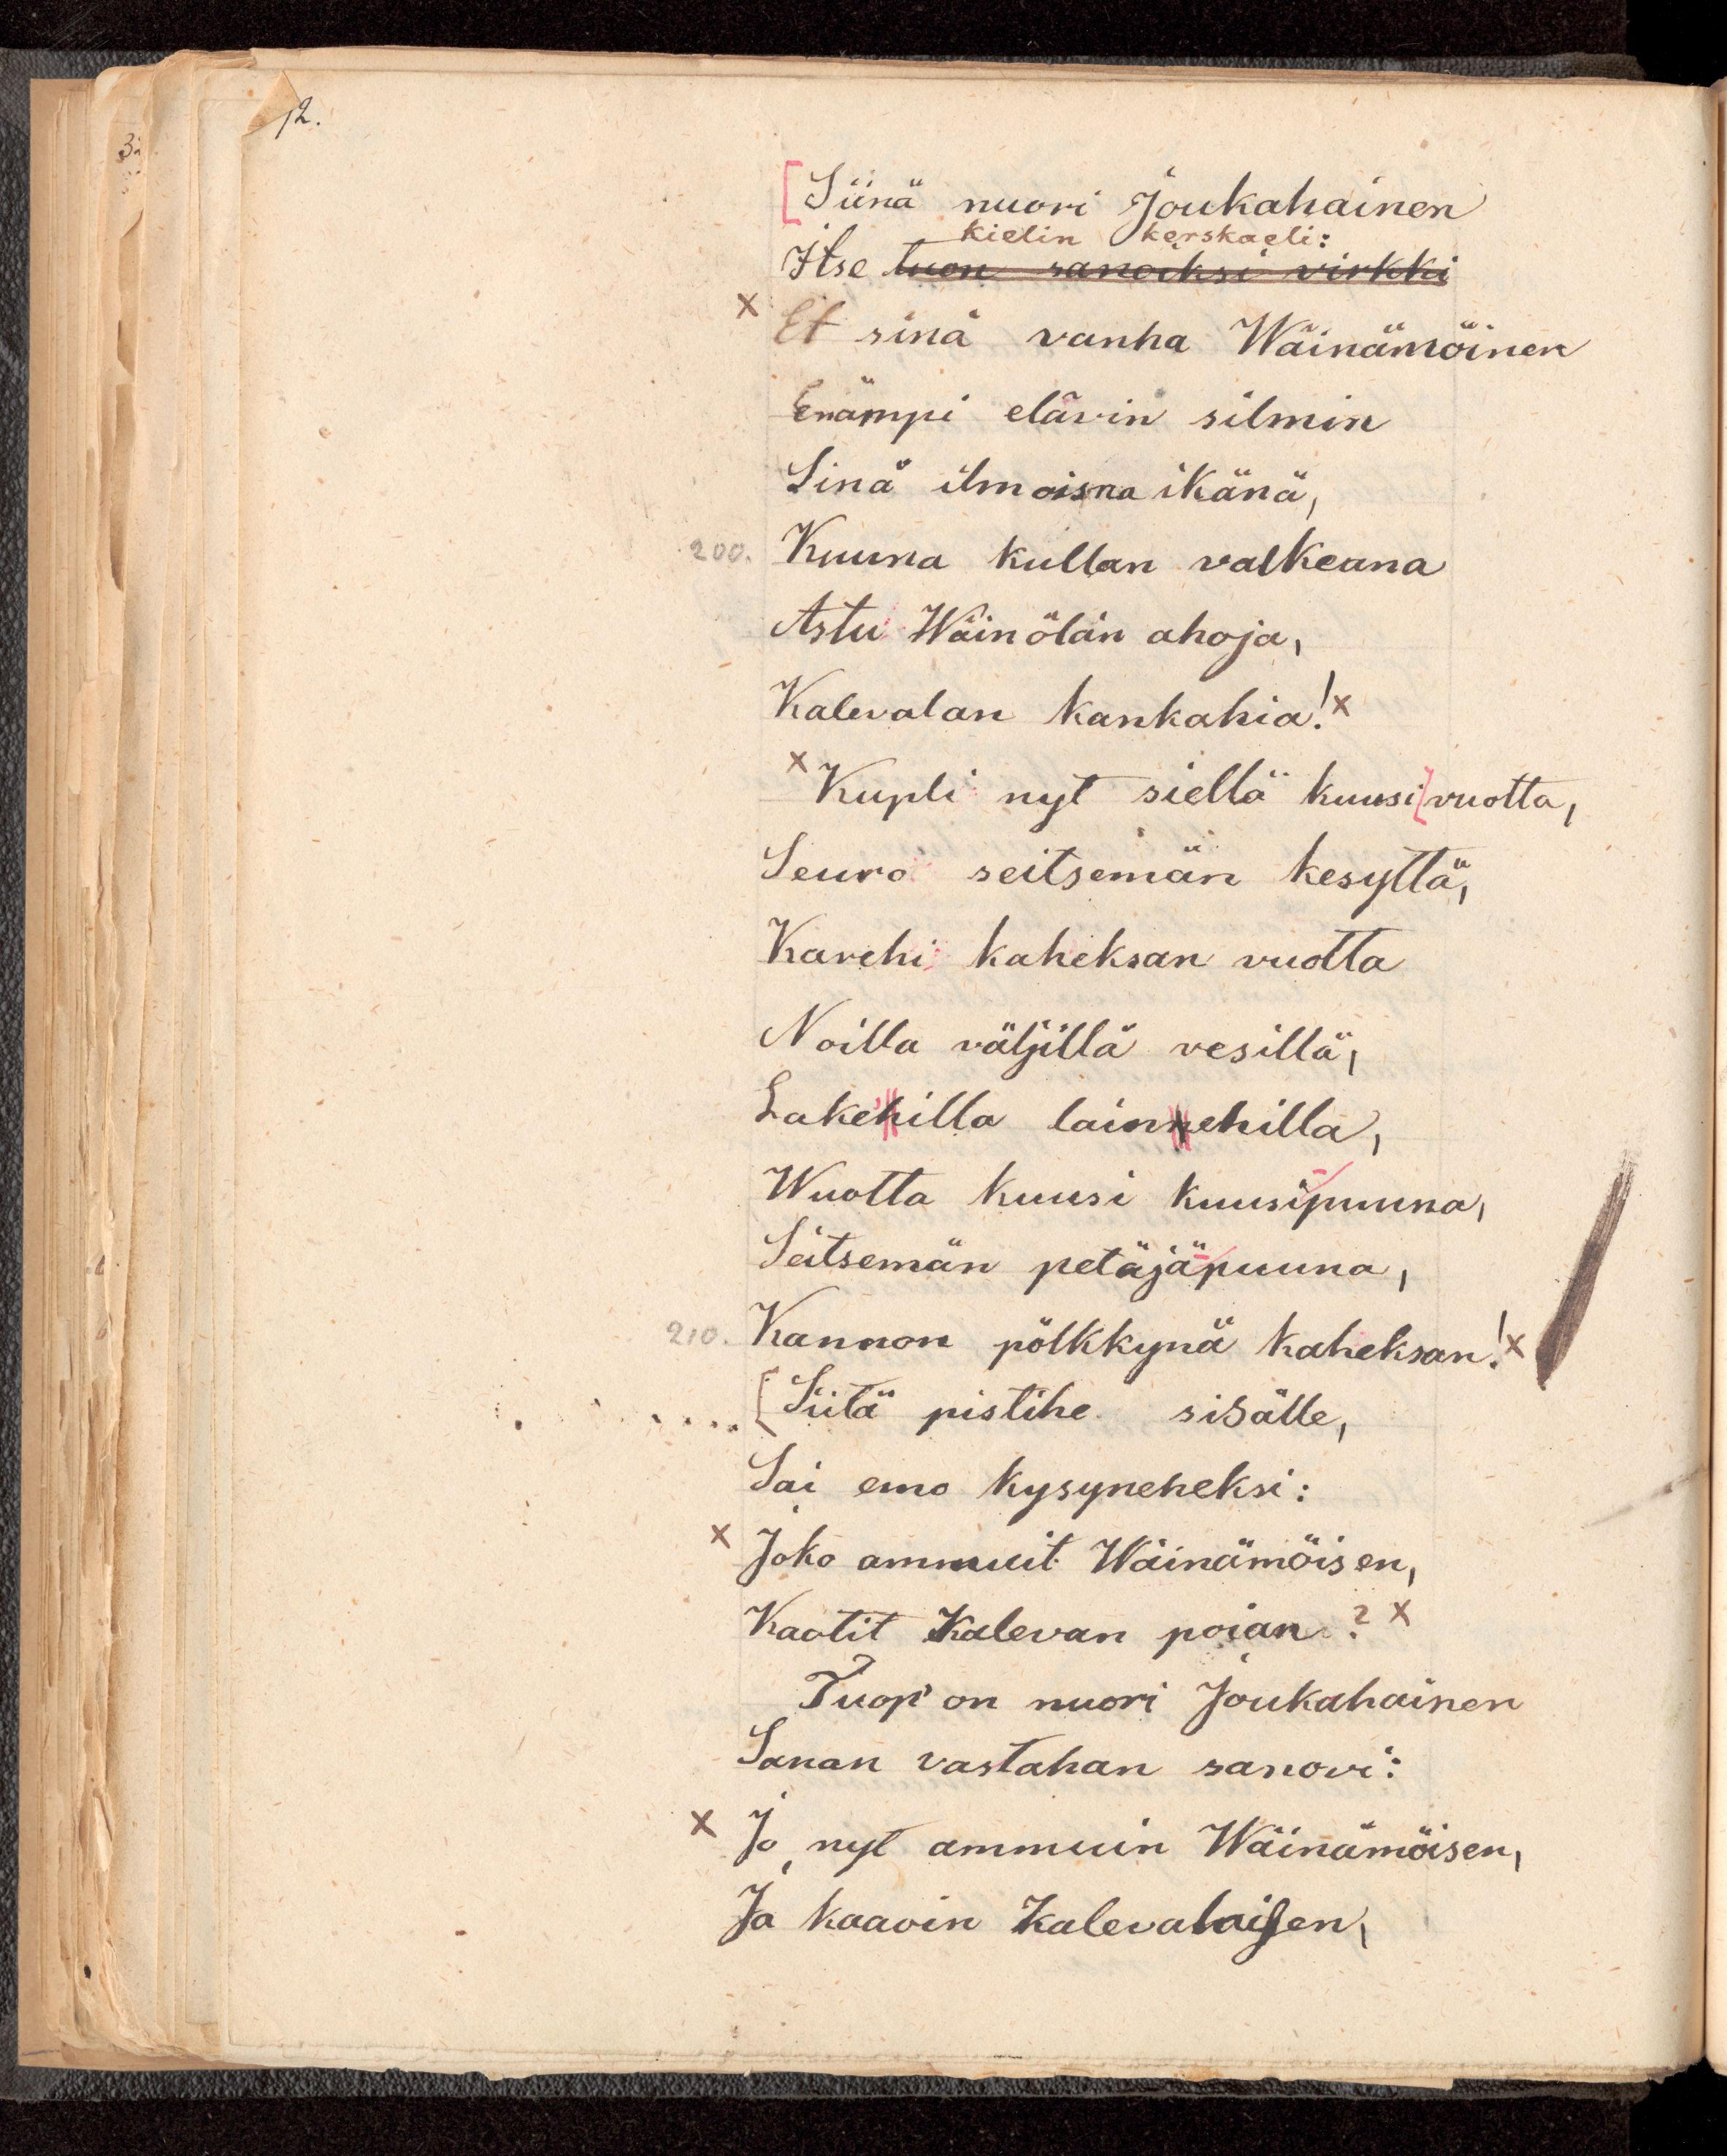 12.
32
[Siinä nuori Joukahainen
kielin kerskaeli:
Itse tuon sanoiksi virkki
x Et sinä vanha Wäinämöinen
Enämpi elävin silmin
Sinä ilmoisna ikänä,
200. Kuuna kullan valkeana
Astu Wäinölän ahoja,
Kalevalan kankahia! x
x Kupli nyt siellä kuusi[vuotta,
Seuro seitsemän kesyttä,
Karehi kaheksan vuotta
Noilla väljillä vesillä,
Lakehilla lainnehilla,
Wuotta kuusi kuusipuuna,
Seitsemän petäjäpuuna,
210. Kannon pölkkynä kaheksan! x
[Siitä pistihe sisälle,
Sai emo kysyneheksi:
x Joko ammuit Wäinämöisen,
Kaotit Kalevan poian? x
Tuop' on nuori Joukahainen
Sanan vastahan sanovi:
x Jo nyt ammuin Wäinämöisen,
Ja kaavin Kalevalaisen,